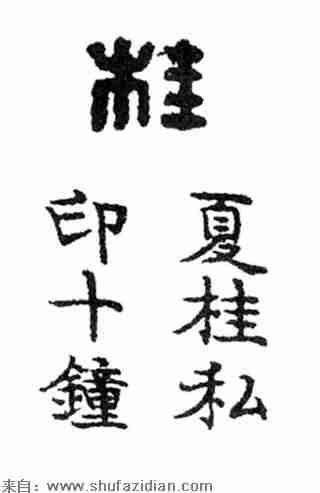 桂
夏桂私
印十鐘
来自：www.shufazidian.com